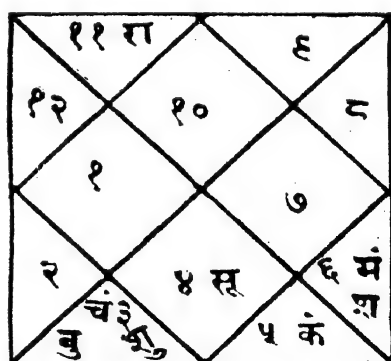 ११ रा
९
१२
१०
८
१
७
२
४ सू
६ मं
श
चं ३
शु
बु
५ कं